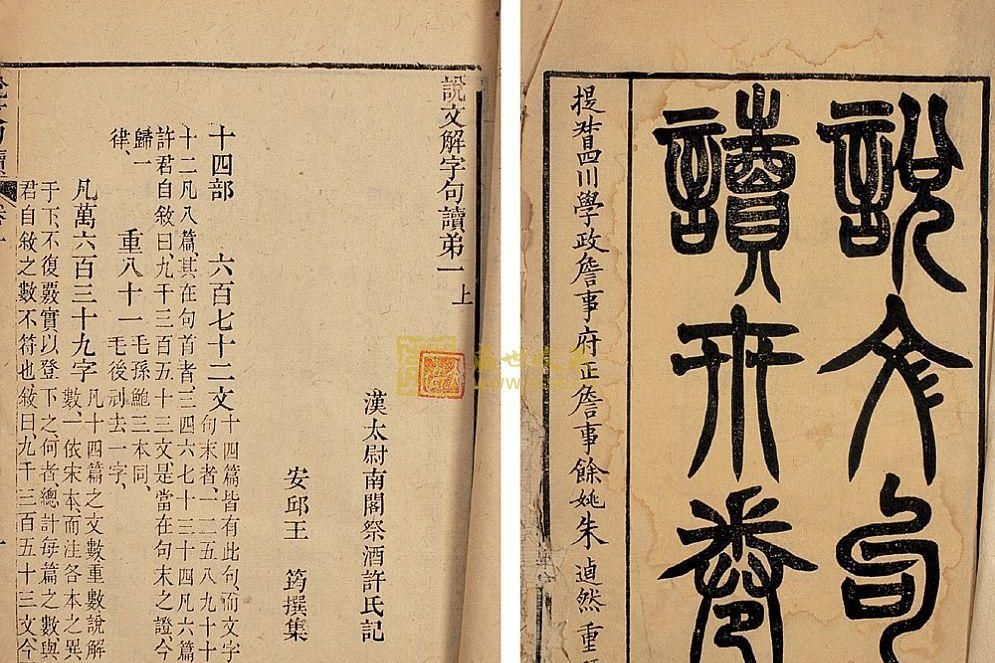 說文句
讀卅卷
提督四川學政詹事府正詹事餘姚朱逌然重
說文解字句讀弟一 上
漢太尉南閣祭酒許氏記
安邱王 筠撰集
十四部 六百七十二文 十四篇皆有此句而文字
句末者一二五八九十十
十二凡八篇其在句首者三四六七十三十四凡六篇
許君自敘曰九千三百五十三文是當在句末之證今
歸一
律
重八十一 毛孫鮑三本同
毛後剜去一字
凡萬六百三十九字 凡十四篇之文數重數說解
數一依宋本而注各本之異
于下不復覈實以登下之何者總計每篇之數與
君自敘之數不符也敘曰九千三百五十三文今